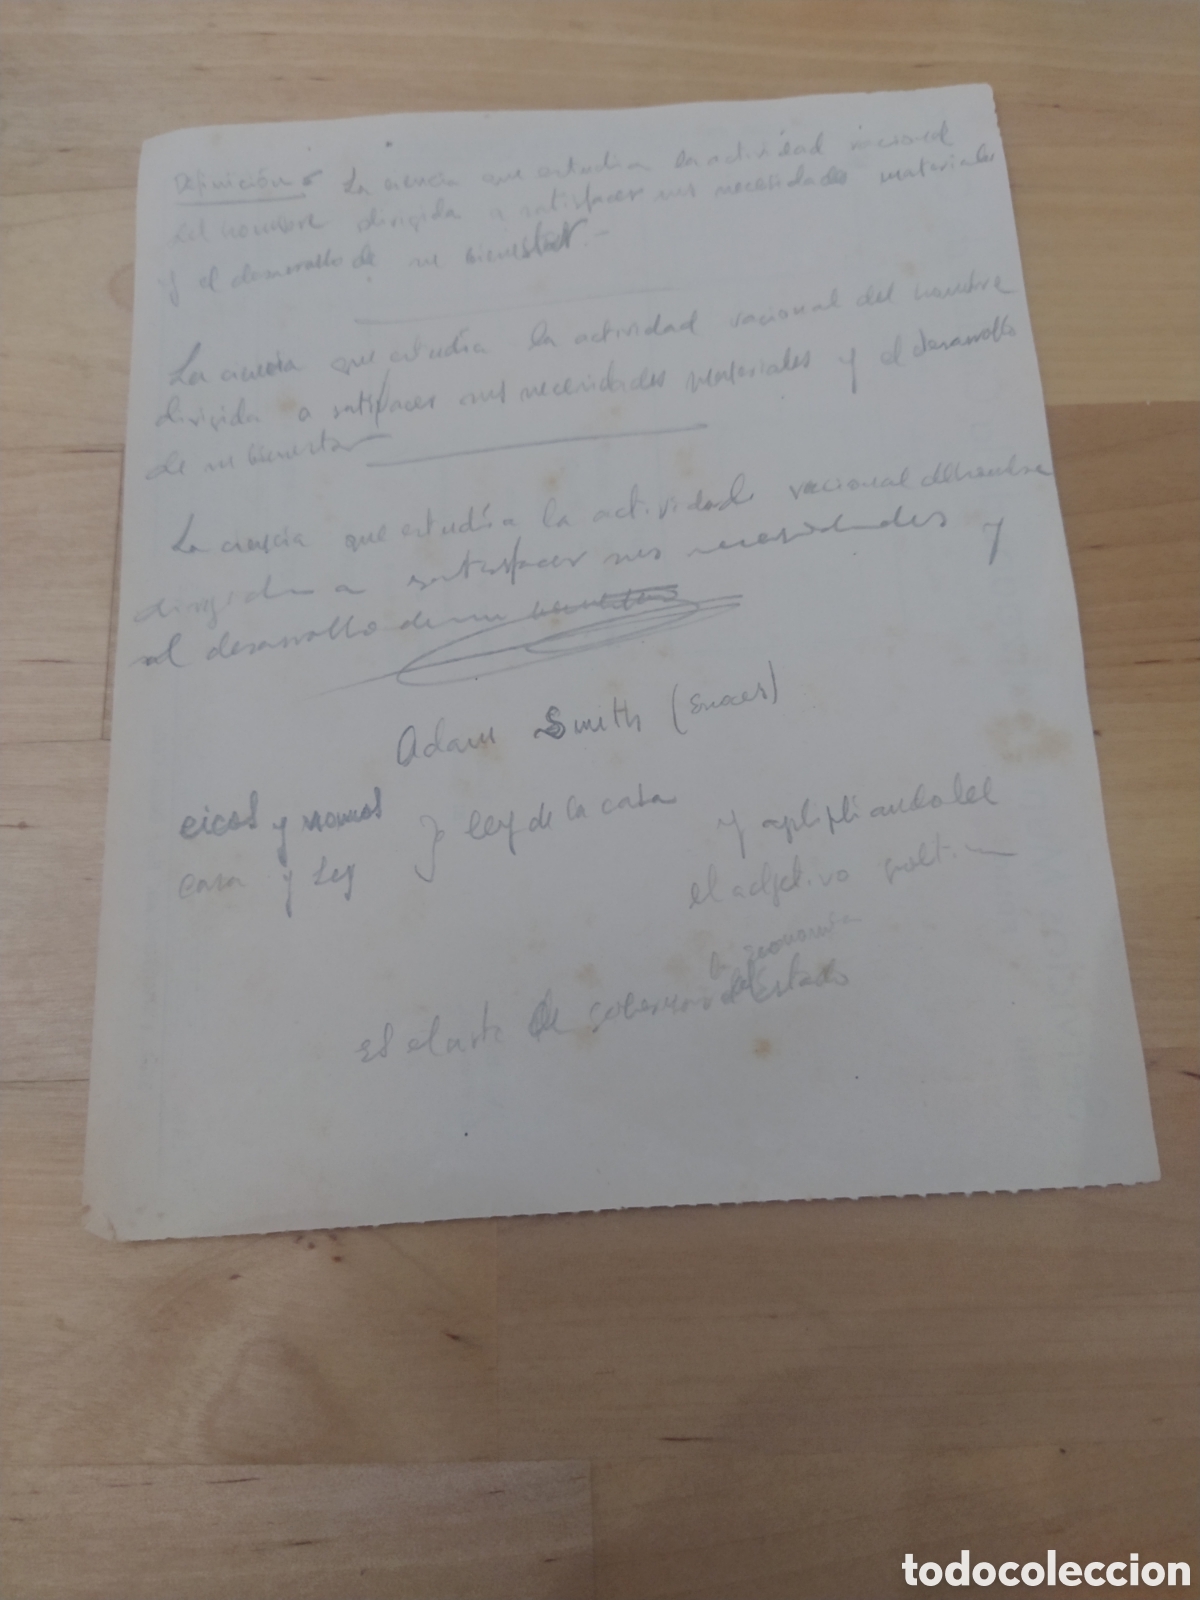 Definición La ciencia que estudia la actividad racional
del hombre dirigida a satisfacer sus necesidades materiales
y el desarrollo de su bienestar.-
La ciencia que estudia la actividad racional del hombre
dirigida a satisfacer sus necesidades materiales y el desarrollo
de su bienestar
La ciencia que estudia la actividad racional del hombre
dirigida a satisfacer sus necesidades y
el desarrollo de su bienestar
Adam Smith
eicos y nomos
casa y Ley } ley de la casa
y
el adjetivo
la economía
es el arte de gobernar el Estado
todocoleccion